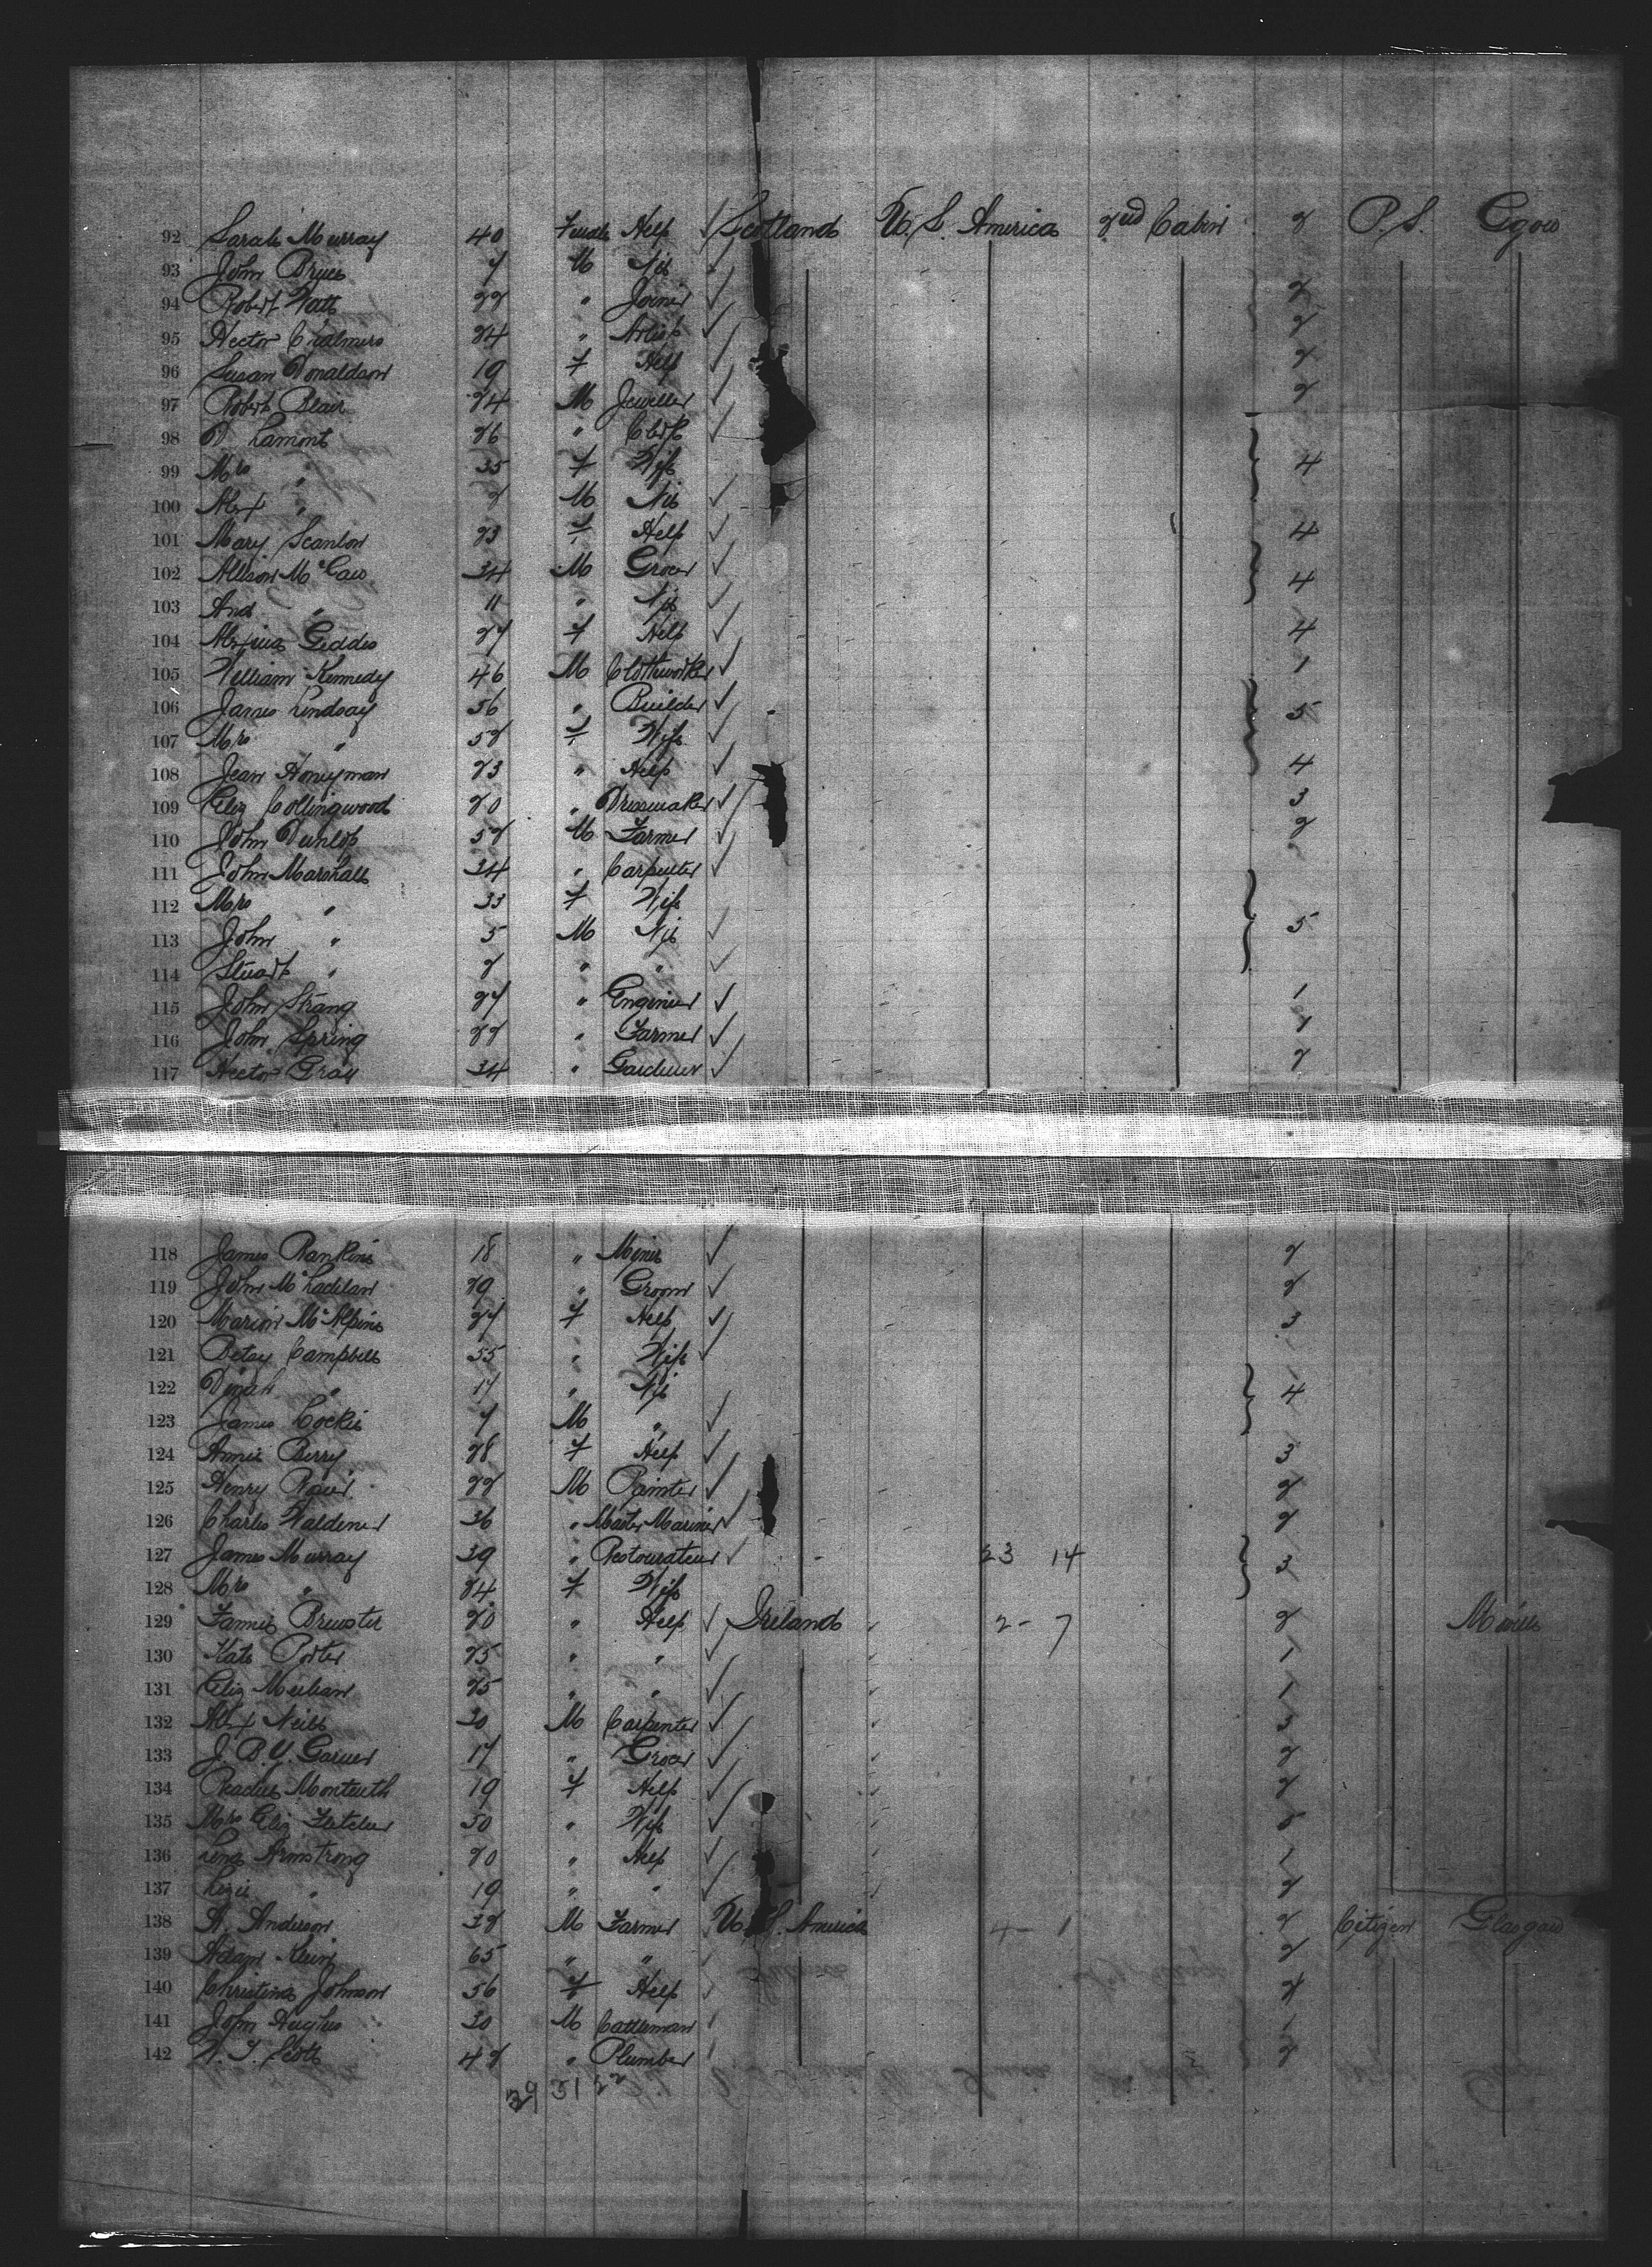 92 Sarah Murray 40 Female Help Scotland U. S. America 2nd Cabin 2 P. S. Ggow
93 John Bryce 7 M Nil
94 Robert Watt 22 " Joiner 2
95 Hector Chalmers 24 " Artist 2
96 Susan Donaldson 19 F Help 2
97 Robt Blair 24 M Jeweller 2
98 D Lamont 26 " Clerk
99 Mrs " 35 F Wife 4
100 Alex " 2 M Nil
101 Mary Scanlon 23 F Help 4
102 Allison McCaw 34 M Grocer 4
103 And " 11 " Nil
104 Alexina Geddes 27 F Help 4
105 William Kennedy 46 M Clothworker 1
106 James Lindsay 56 " Builder 5
107 Mrs " 52 F Wife
108 Jean Honeyman 23 " Help 4
109 Eliz Collingwood 20 " Dressmaker 3
110 John Dunlop 52 M Farmer 2
111 John Marshall 34 " Carpenter
112 Mrs " 33 F Wife
113 John " 5 M Nil 5
114 Stuart " 2 " "
115 John Strang 27 " Engineer 1
116 John Spring 22 " Farmer 1
117 Hector Gray 34 " Gardener 2
118 James Rankine 18 " Miner 2
119 John McLachlan 29 " Groom 2
120 Marion McAlpine 27 F Help 3
121 Betsy Campbell 55 " Wife
122 Dinah " 17 " Nil 4
123 James Cockie 7 M "
124 Annie Berry 28 F Help 3
125 Henry 22 M Painter 2
126 Charles Waldener 36 " Master Mariner 2
127 James Murray 39 " Restourateur 23 14 3
128 Mrs " 24 F Wife
129 Fannie Brewster 20 " Help Ireland 2 - 7 2 Moville
130 Kate Porter 25 " " 1
131 Eliz Meehan 25 " " 1
132 Alex Neill 30 M Carpenter 3
133 J. B. Y. Garner 17 " Grocer 2
134 Monteuth 19 F Help 2
135 Mrs Eliz Fletcher 50 " Wife
136 Lena Armstrong 20 " Help 1
137 Lizzie " 19 " " 2
138 A. Anderson 32 M Farmer U. S. America 4 - 1 2 Citizen Glasgow
139 Adam 65 " " 2
140 Christina Johnson 56 F Help
141 John Hughes 30 M Cattleman 1
142 W. J. Scott 42 " Plumber 2
29 31 22